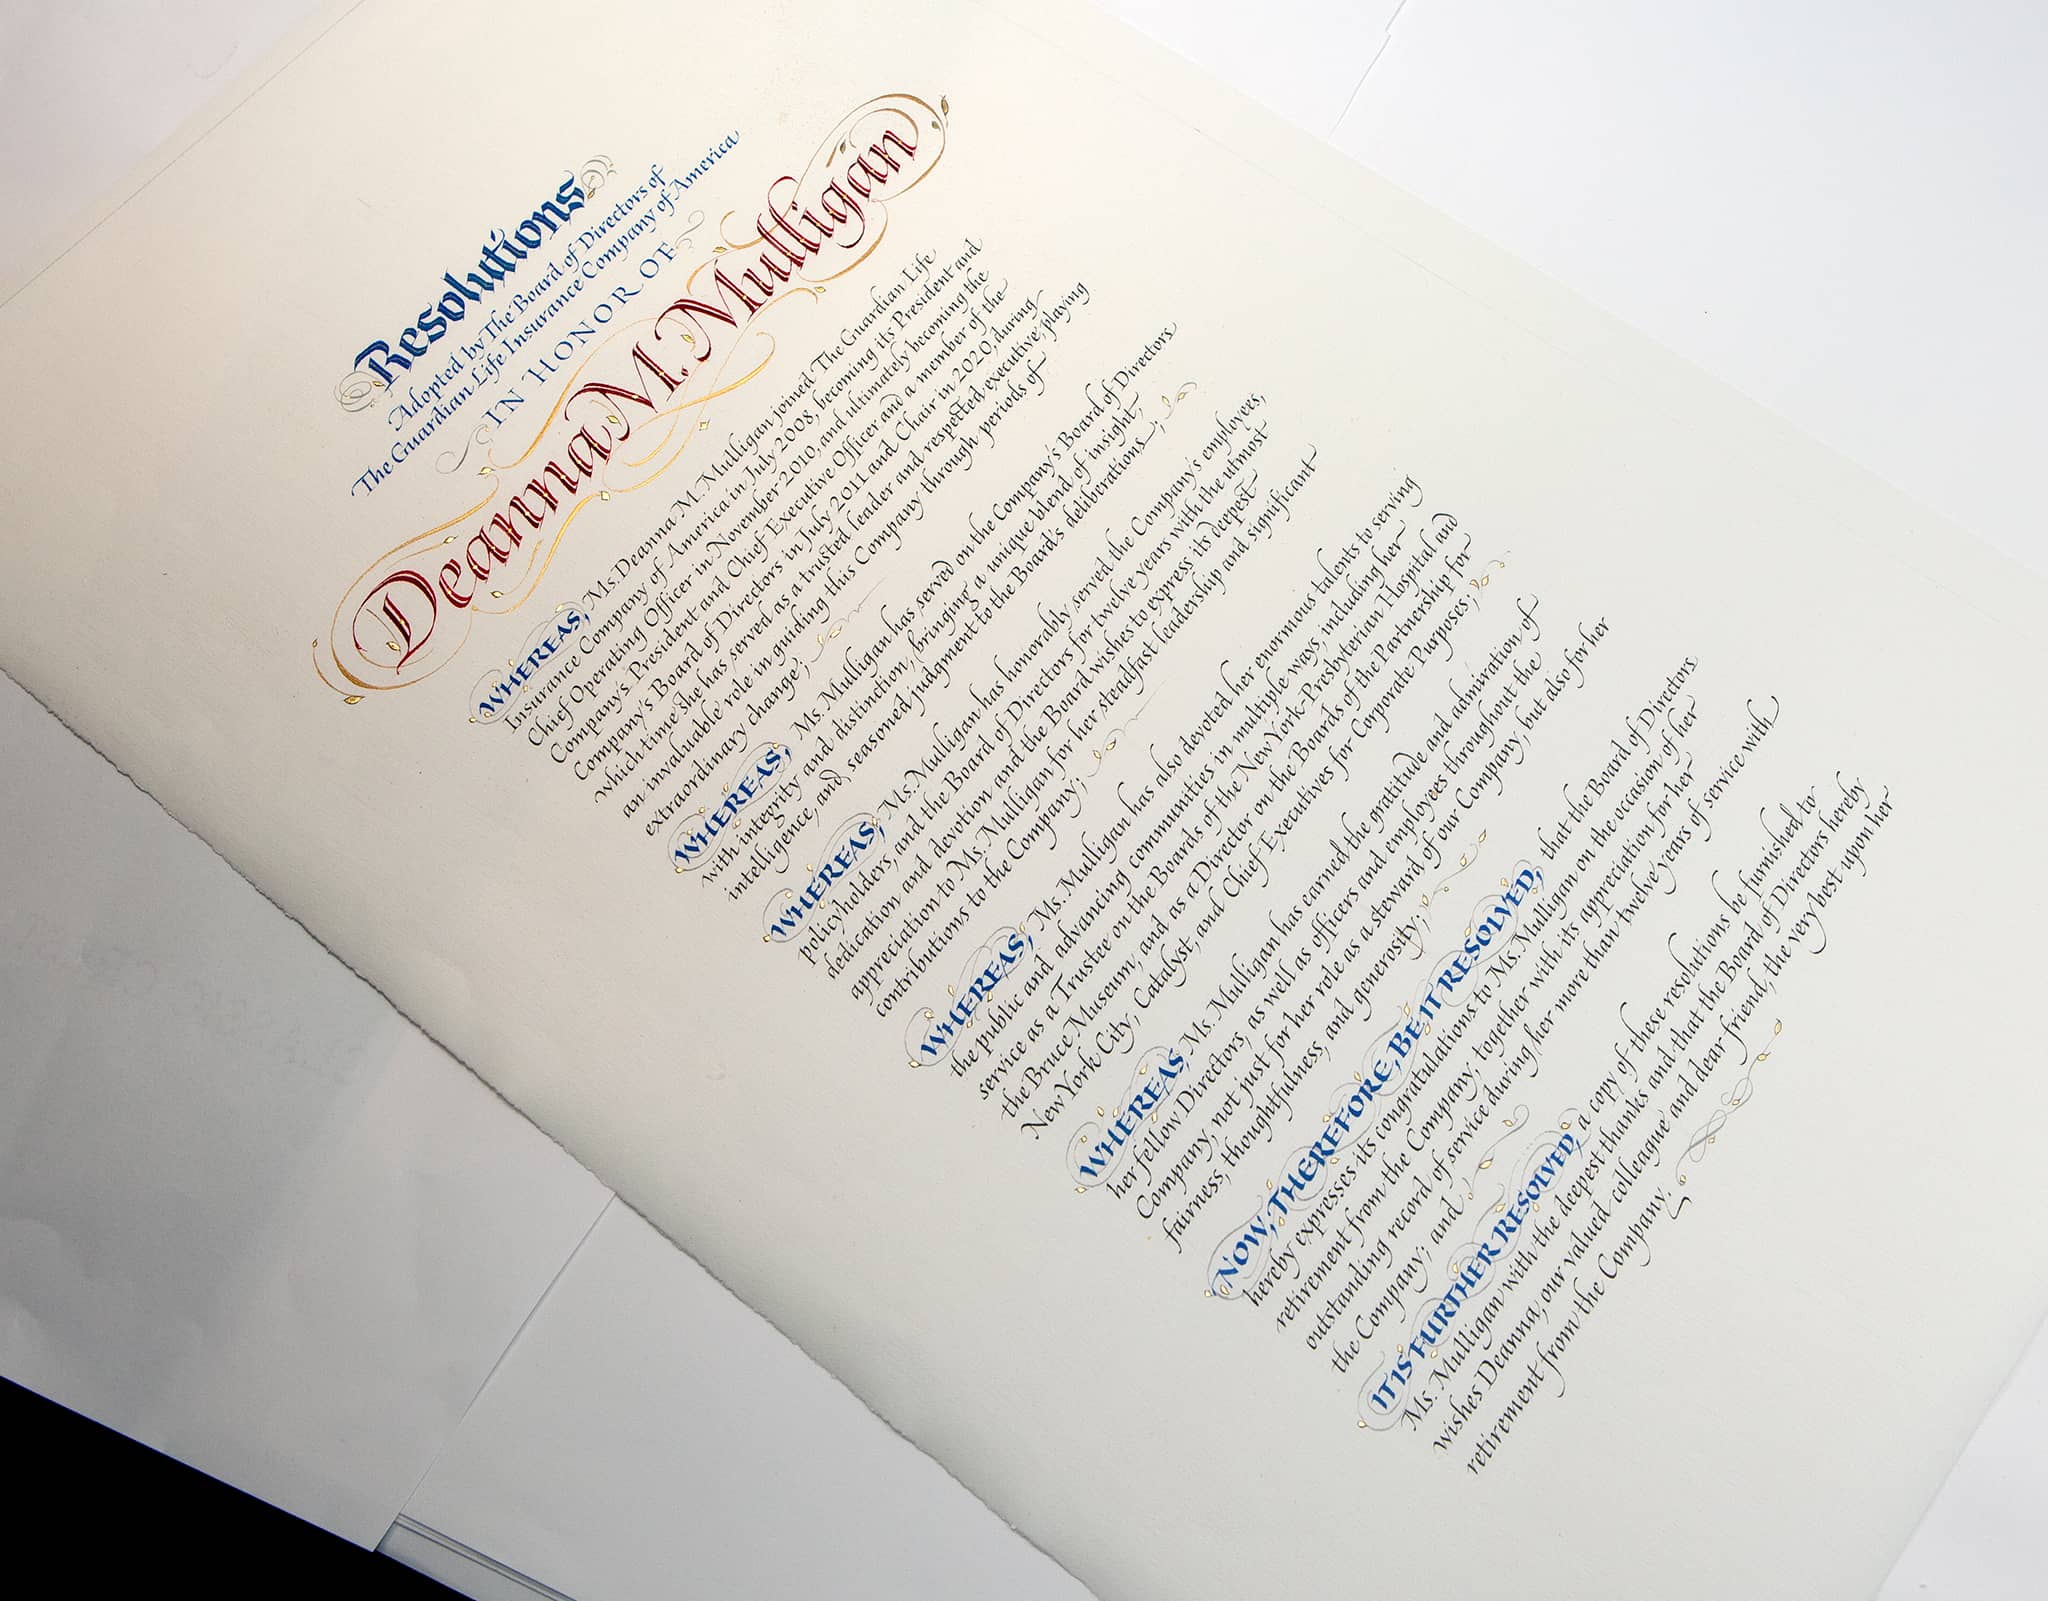 Resolutions
Adopted by The Board of Directors of
The Guardian Life Insurance Company of America
IN HONOR OF
Deanna M. Mulligan
WHEREAS, Ms. Deanna M. Mulligan joined The Guardian Life
Insurance Company of America in July 2008, becoming its President and
Chief Operating Officer in November 2010, and ultimately becoming the
Company's President and Chief Executive Officer and a member of the
Company's Board of Directors in July 2011 and Chair in 2020, during
which time she has served as a trusted leader and respected executive, playing
an invaluable role in guiding this Company through periods of
extraordinary change;
WHEREAS, Ms. Mulligan has served on the Company's Board of Directors
with integrity and distinction, bringing a unique blend of insight,
intelligence, and seasoned judgment to the Board's deliberations;
WHEREAS, Ms. Mulligan has honorably served the Company's employees,
policyholders, and the Board of Directors for twelve years with the utmost
dedication and devotion and the Board wishes to express its deepest
appreciation to Ms. Mulligan for her steadfast leadership and significant
contributions to the Company;
WHEREAS, Ms. Mulligan has also devoted her enormous talents to serving
the public and advancing communities in multiple ways, including her
service as a Trustee on the Boards of the New York-Presbyterian Hospital and
the Bruce Museum, and as a Director on the Boards of the Partnership for
New York City, Catalyst, and Chief Executives for Corporate Purposes;
WHEREAS, Ms. Mulligan has earned the gratitude and admiration of
her fellow Directors, as well as officers and employees throughout the
Company, not just for her role as a steward of our Company, but also for her
fairness, thoughtfulness, and generosity;
NOW, THEREFORE, BE IT RESOLVED, that the Board of Directors
hereby expresses its congratulations to Ms. Mulligan on the occasion of her
retirement from the Company, together with its appreciation for her
outstanding record of service during her more than twelve years of service with
the Company; and
IT IS FURTHER RESOLVED, a copy of these resolutions be furnished to
Ms. Mulligan with the deepest thanks and that the Board of Directors hereby
wishes Deanna, our valued colleague and dear friend, the very best upon her
retirement from the Company.